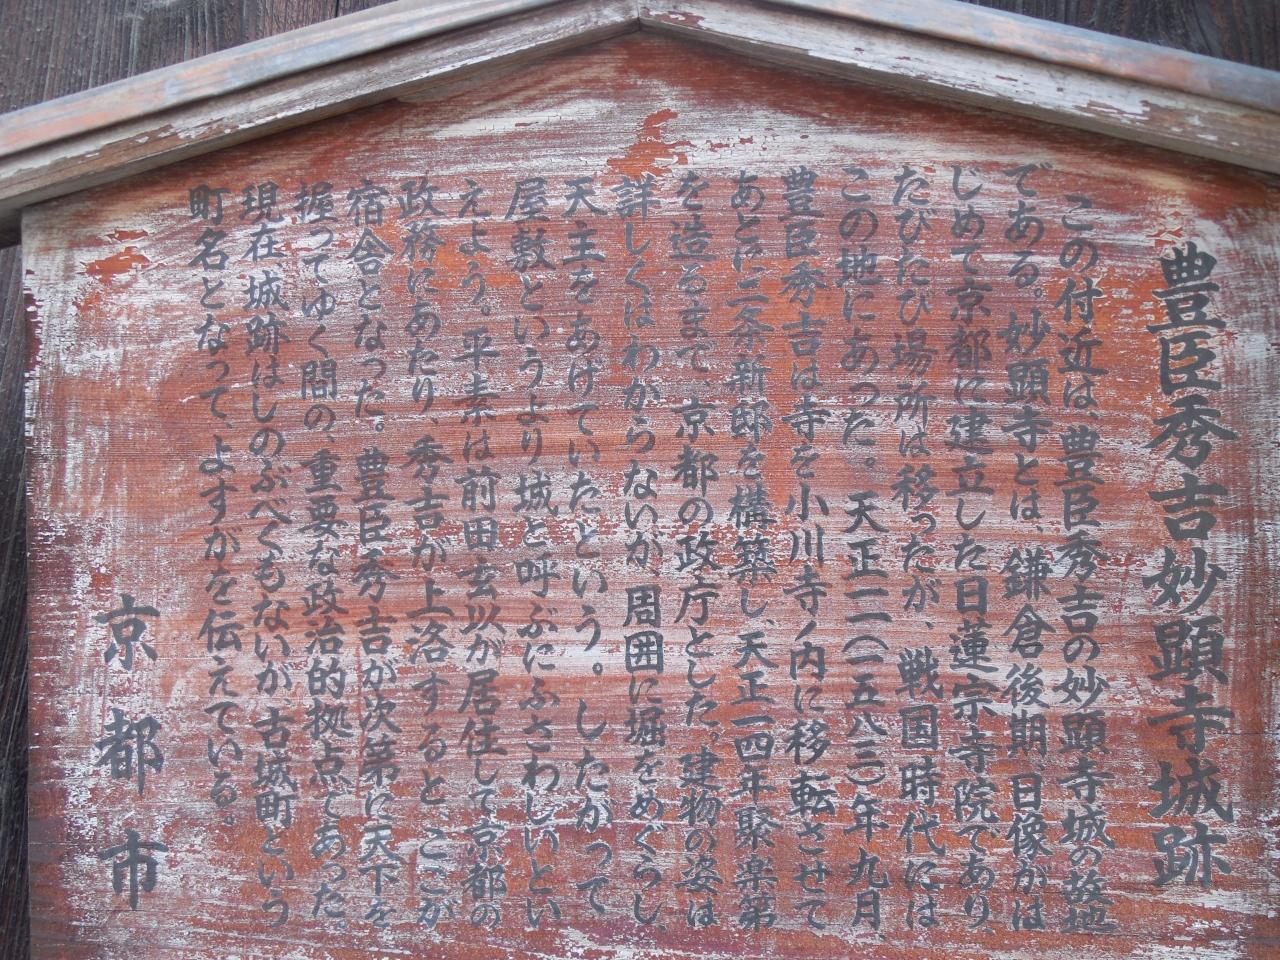 豊臣秀吉妙顕寺城跡
この付近は、豊臣秀吉の妙顕寺城の故地
である。妙顕寺とは、鎌倉後期、日像がは
じめて京都に建立した日蓮宗寺院であり、
たびたび場所は移ったが、戦国時代には
この地にあった。天正一一(一五八三)年九月
豊臣秀吉は寺を小川寺ノ内に移転させて
あとに二条新邸を構築し、天正一四年聚楽第
を造るまで、京都の政庁とした。建物の姿は
詳しくはわからないが、周囲に堀をめぐらし、
天主をあげていたという。したがって
屋敷というより城と呼ぶにふさわしいとい
えよう。平素は前田玄以が居住して京都の
政務にあたり、秀吉が上洛すると、ここが
宿舎となった。豊臣秀吉が次第に天下を
握ってゆく間の、重要な政治的拠点であった。
現在城跡はしのぶべくもないが、古城町という
町名となって、よすがを伝えている。
京都市